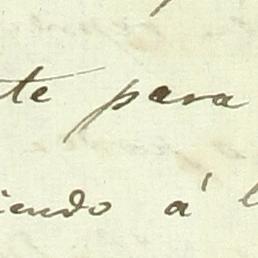 te para
iendo á l